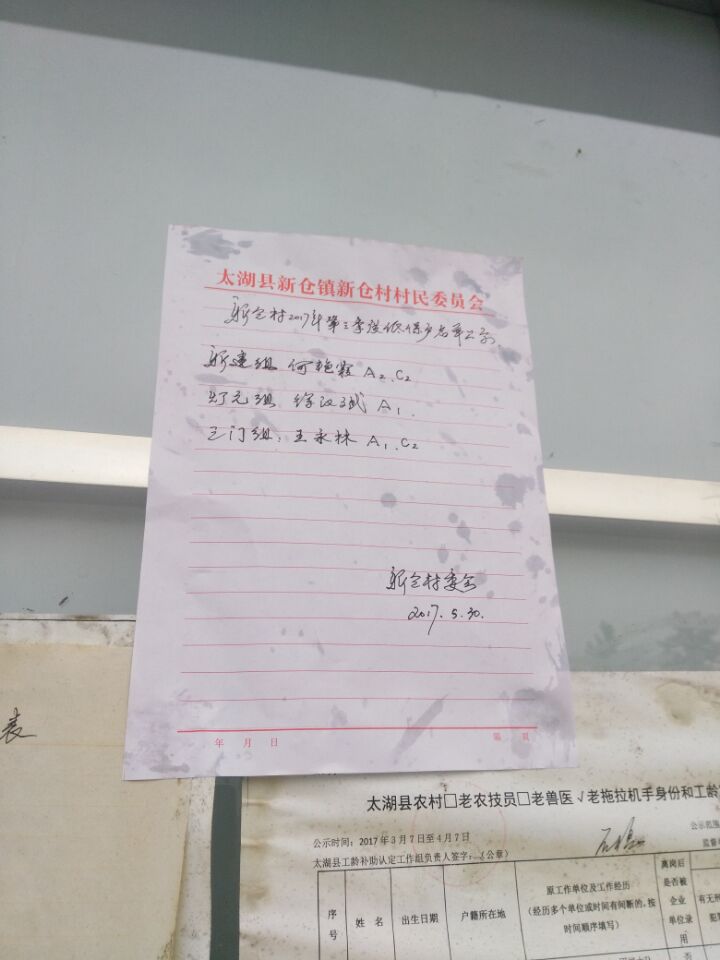 太湖县新仓镇新仓村村民委员会
新仓村2017年第三季度低保户名单公示
新建组 何艳霞 A2、C2
灯元组 徐汉斌 A1.
三门组: 王永林 A1、C2
新仓村委会
2017.5.30.
年 月 日
第 页
表
太湖县农村□老农技员□老兽医√老拖拉机手身份和工龄
公示时间：2017年3月7日至4月7日
公示范围
太湖县工龄补助认定工作组负责人签字：（公章）
监督
序号
姓 名
出生日期
户籍所在地
原工作单位及工作经历
（经历多个单位或时间有间断的,按时间顺序填写）
离岗后是否被企业单位录用
有无刑